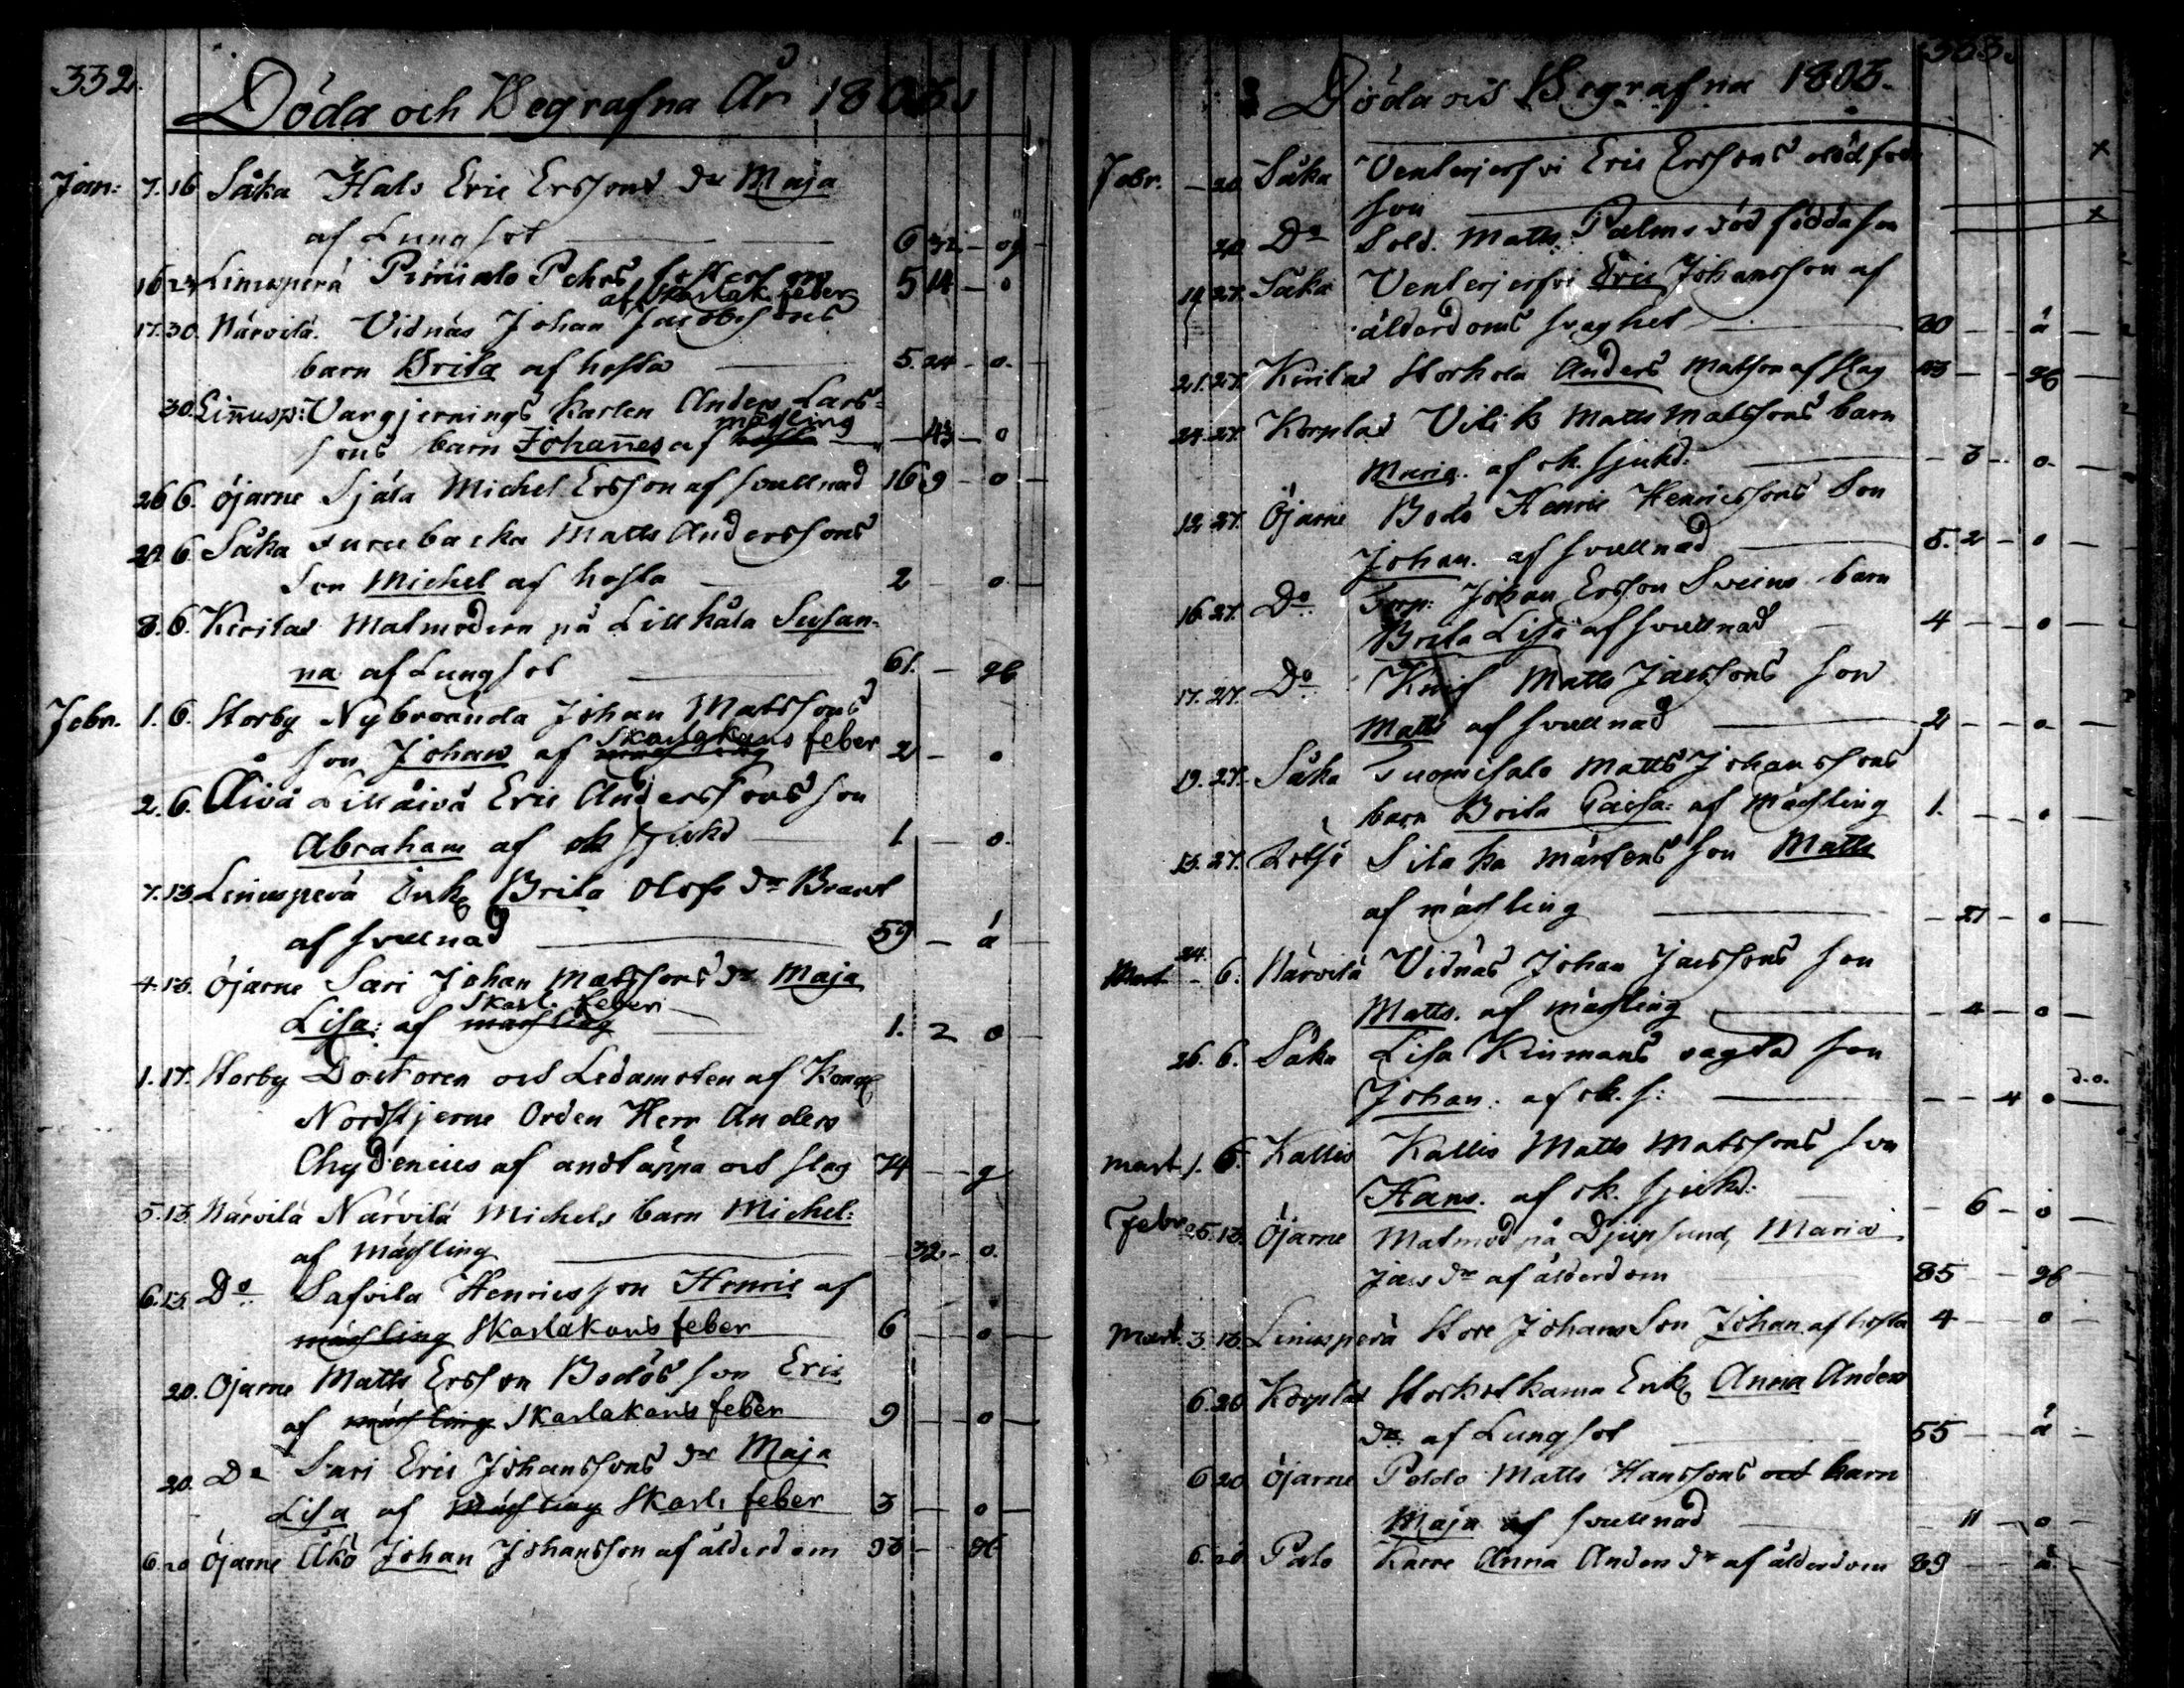 332.
Döda och Begrafna År 1803.
Jan: 7. 16 Såka Hals Eric Erssons dr Maja
af Lungsot 6 32 - og
16 23 Linusperä Pehrs
af Skarlak. feber 5 14 - o
17. 30. Närvilä. Vidnäs Johan Jacobssons
barn Brita af hosta 5. 24 - o.
30. Linusp: Vargjernings Karlen Anders Lars-
sons barn Johannes af mässling - 43 - o
26 6. Öjarne Själa Michel Ersson af svullnad 16 9 - o
29. 6. Såka Furubacka Matts Anderssons
Son Michel af hosta 2 o.
8. 6. Kirilax Matmodern på Lillhåla Susan-
na af Lungsot 61. - gb
Febr. 1. 6. Storby Nybroända Johan Matssons
son Johan af Skarlakans feber 2 - o
2. 6. Åivå Lillåivå Eric Anderssons son
Abraham af ok sjukd 1 - o.
7. 13. Linusperä Enk Brita Olofs dr Brant
af svullnad 59 - ä
4. 13. Öjarne Sari Johan Matssons dr Maja
Lisa: af mässling Skarl. feber 1. 2 o
1. 17. Storby Doctoren och Ledamoten af Kongl
Nordstjerne Orden Herr Anders
Chydenius af andtäppa och slag 74 - g
5. 13. Närvilä Närvilä Michels barn Michel:
af mässling - 32 - o.
6. 13. Do Safvila Henricsson Henric af
mässling Skarlakans feber 6 - o
20. Öjarne Matts Ersson Bodös son Eric
af mässling Skarlakans feber 9 - o
20. Do Sari Eric Johanssons dr Maja
Lisa af mässling Skarl. feber 3 - o
6. 20 Öjarne Åkö Johan Johansson af ålderdom
333.
Döda och Begrafna 1803.
Febr. - 20. Såka Ventusjerfvi Eric Erssons
son x
20 Do Sold. Matts Palms död födda son x
19 27. Såka Ventusjerfvi Eric Johansson af
ålderdoms svaghet 80 - ä
21. 27. Kirilax Storhola Anders Matsson af slag 53 - gb
24. 27. Korplax Vitik Matts Matssons barn
Maria. af ok. sjukd. - 3 - o.
12 27. Öjarne Bodö Henric Henricssons Son
Johan. af svullnad 5. 2 - o
16. 27. Do Torp: Johan Ersson Sveins barn
Brita Lisa af svullnad 4 - o
17. 27. Do Knif Matts Jacssons son
Matts af svullnad 2 - o
19. 27. Såka Tuomisalo Matts Johanssons
barn Brita Caisa: af mässling 1. - o
13. 27. Rötsö Sila ka Mårtens son Matts
af mässling - 21 - o
Mart 24. - 6. Närvilä Vidnäs Johan Jacssons son
Matts. af mässling - 4 - o
26. 6. Såka Lisa Kinmans oagta son
Johan: af ok. s: - - 4 o d.o.
Mart. 1. 6. Kallis Kallis Matts Matssons son
Hans. af ok. sjukd: - 6 - o
Febr 25. 13. Öjarne Matmod på Djupsund, Maria
Jacs dr af ålderdom 85 - gb
Mart. 3. 13. Linusperä Store Johans Son Johan af hosta 4 - o
6. 20 Korplax Storkotkama Enk Anna Anders
dr. af Lungsot 55 - ä
6 20 Öjarne Poldo Matts Hanssons barn
Maja af svullnad - 11 - o
6. 20 Palo Karre Anna Anders dr af ålderdom 89 ä